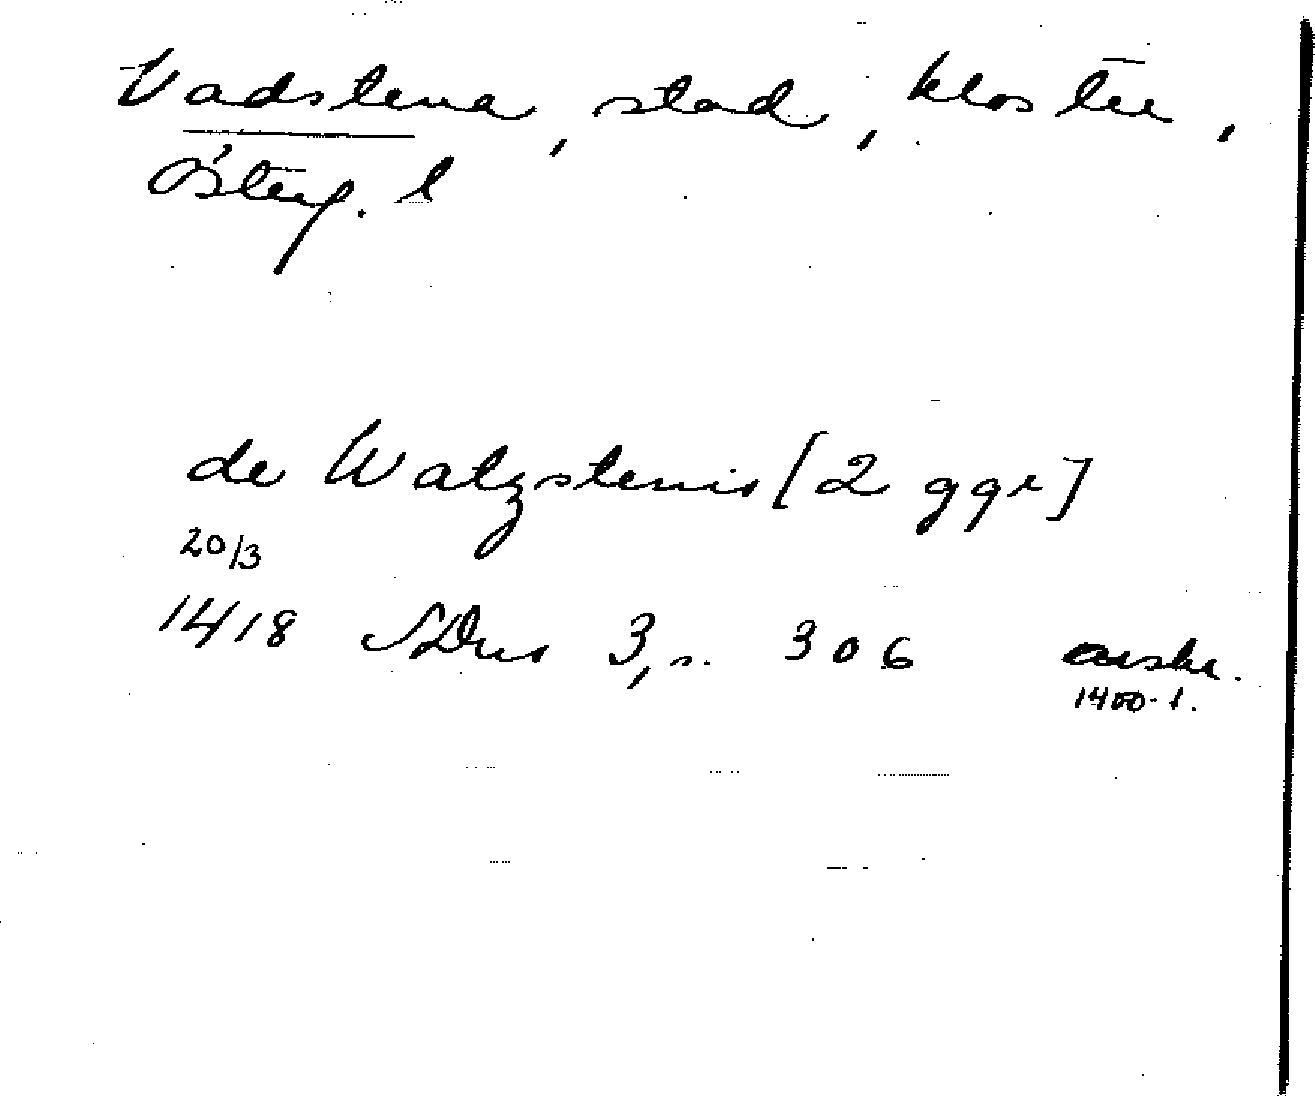 Vadstena, stad, kloster,
Österg. l
de Watzstenis [2 ggr]
20/3
1418 SDns 3, s. 306 avskr.
1400-t.